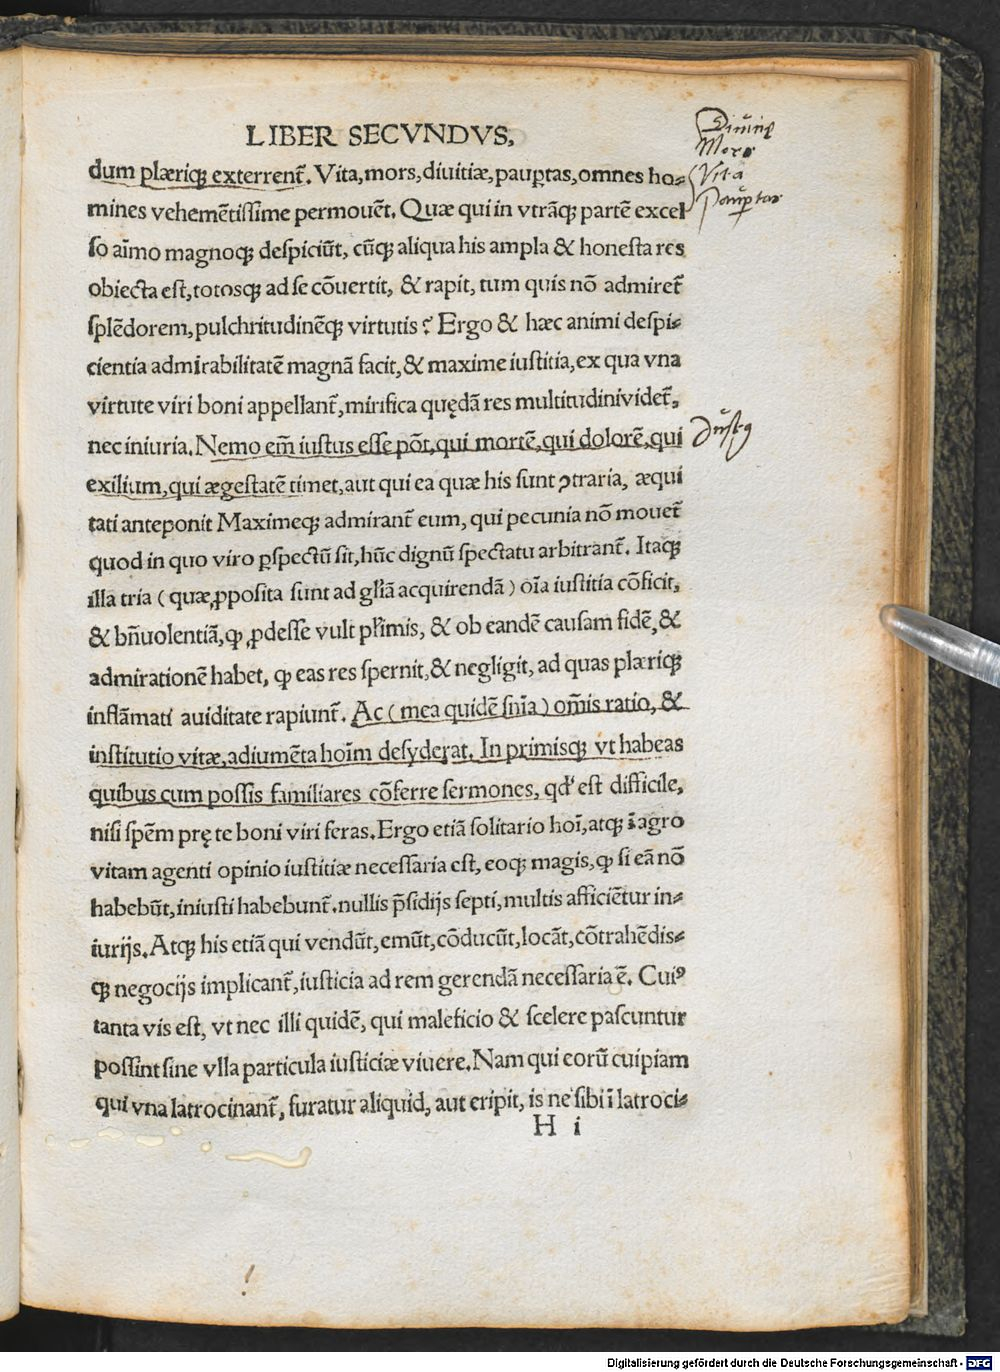 LIBER SECVNDVS,
dum plæriqꝫ exterrent̃. Vita, mors, diuitiæ, paup̱tas, omnes ho⸗
mines vehemẽtissime permouẽt. Quæ qui in vtrãqꝫ partẽ excel
so aĩmo magnoqꝫ despiciũt, cũqꝫ aliqua his ampla & honesta res
obiecta est, totosqꝫ ad se cõuertit, & rapit, tum quis nõ admiret̃
splẽdorem, pulchritudinẽqꝫ virtutis? Ergo & hæc animi despi⸗
cientia admirabilitatẽ magnã facit, & maxime iustitia, ex qua vna
virtute viri boni appellant̃, mirifica quędã res multitudini videt̃,
nec iniuria. Nemo em̃ iustus esse põt, qui mortẽ, qui dolorẽ, qui
exilium, qui ægestatẽ timet, aut qui ea quæ his sunt ꝯtraria, æqui
tati anteponit Maximeqꝫ admirant̃ eum, qui pecunia nõ mouet̃
quod in quo viro ꝑspectũ sit, hũc dignũ spectatu arbitrant̃. Itaqꝫ
illa tria (quæ ꝓposita sunt ad gl̃iã acquirendã) oĩa iustitia cõficit,
& bñuolentiã, ꝙ ꝓdesse vult pl̃imis, & ob eandẽ causam fidẽ, &
admirationẽ habet, ꝙ eas res spernit, & negligit, ad quas plæriqꝫ
inflãmati auiditate rapiunt̃. Ac (mea quidẽ sñia) om̃is ratio, &
institutio vitæ, adiumẽta hoĩm desyderat. In primisqꝫ vt habeas
quibus cum possis familiares cõferre sermones, qd' est difficile,
nisi spẽm prę te boni viri feras. Ergo etiã solitario hoĩ, atqꝫ ĩ agro
vitam agenti opinio iustitiæ necessaria est, eoqꝫ magis, ꝙ si eã nõ
habebũt, iniusti habebunt̃. nullis p̃sidijs septi, multis afficiẽtur in⸗
iurijs. Atqꝫ his etiã qui vendũt, emũt, cõducũt, locãt, cõtrahẽdis⸗
qꝫ negocijs implicant̃, iusticia ad rem gerendã necessaria ẽ. Cuiꝰ
tanta vis est, vt nec illi quidẽ, qui maleficio & scelere pascuntur
possint sine vlla particula iusticiæ viuere. Nam qui eorũ cuipiam
qui vna latrocinant̃, furatur aliquid, aut eripit, is ne sibi ĩ latroci⸗
H i
Diuitię
Mors
Vita
Paup̱tas
Iustꝰ
Digitalisierung gefördert durch die Deutsche Forschungsgemeinschaft - DFG